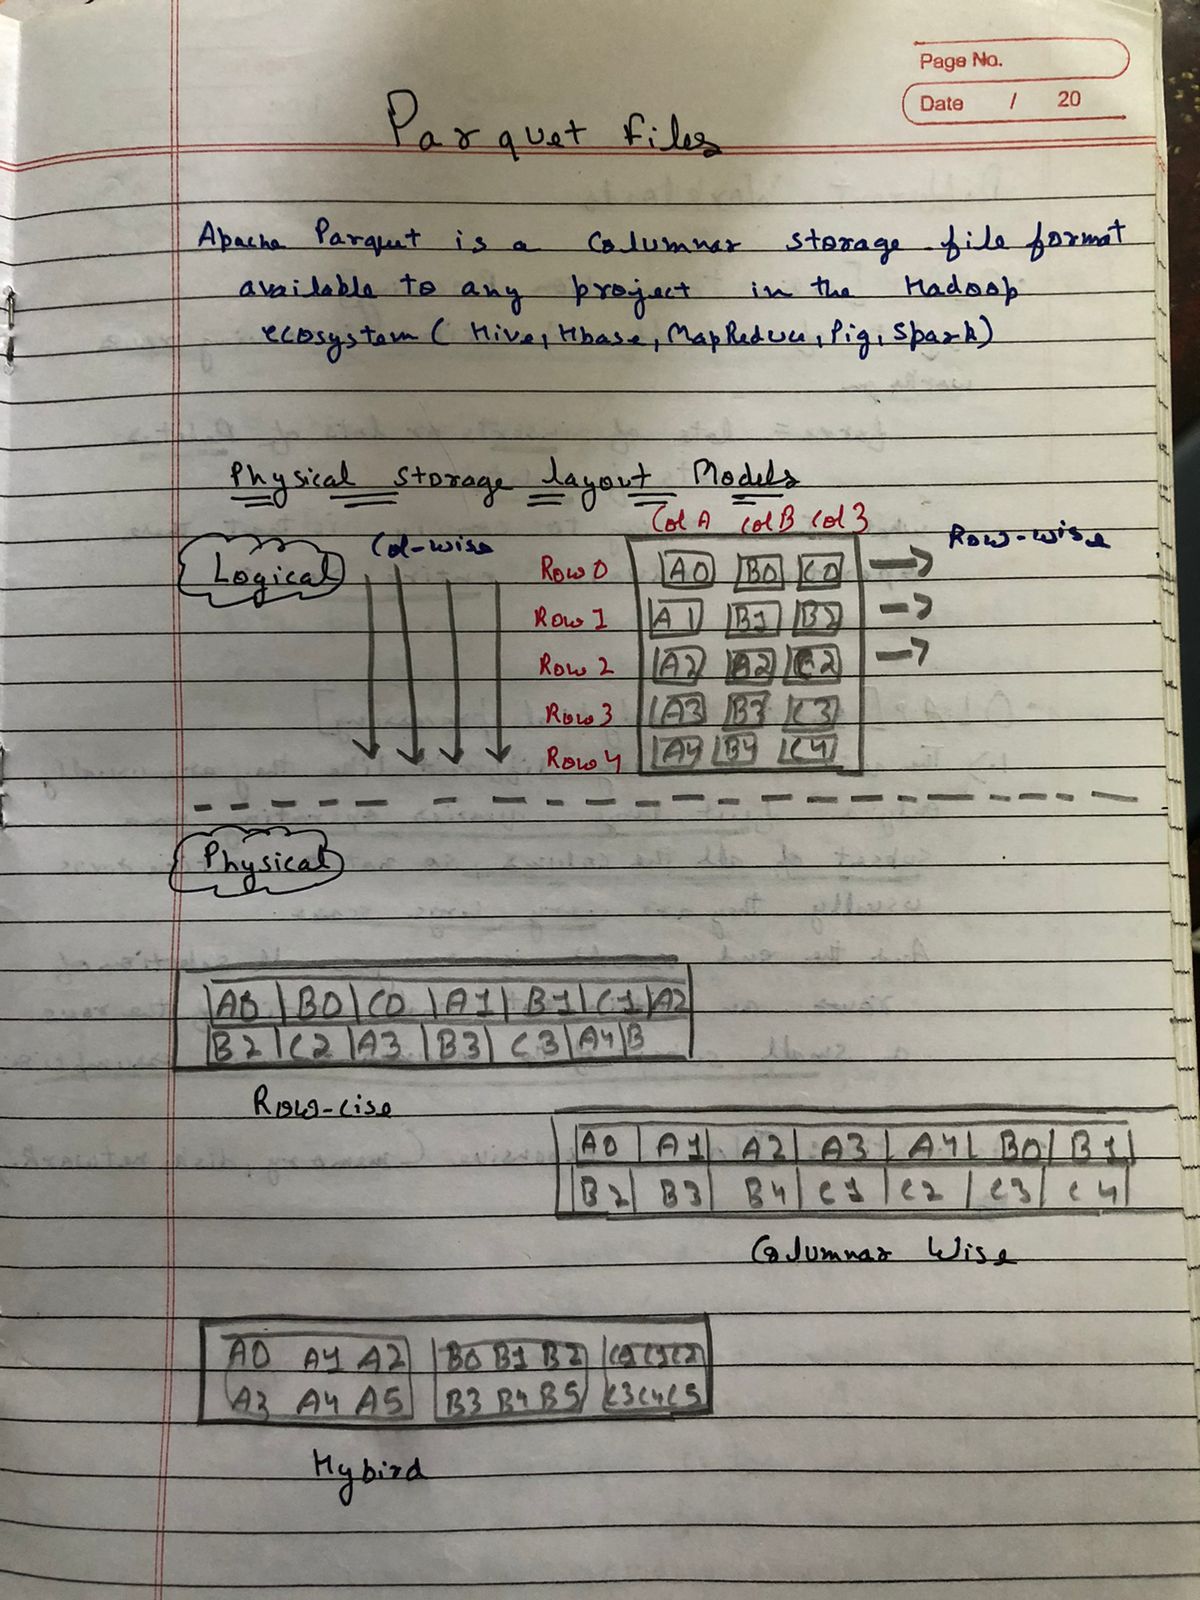 Page No.
Date / 20
Parquet files
Apache Parquet is a Columnar storage file format
available to any project in the Hadoop
ecosystem ( Hive, Hbase, MapReduce, Pig, Spark)
Physical storage layout Models
Col A Col B Col 3
Logical Col-wise Row-wise
Row 0 A0 B0 C0
Row 1 A1 B1 B2
Row 2 A2 A2 C2
Row 3 A3 B3 C3
Row 4 A4 B4 C4
Physical
A0 B0 C0 A1 B1 C1 A2
B2 C2 A3 B3 C3 A4 B
Row-cise
A0 A1 A2 A3 A4 B0 B1
B2 B3 B4 C1 C2 C3 C4
Columnar Wise
A0 A1 A2 B0 B1 B2 C1 C2
A3 A4 A5 B3 B4 B5 C3 C4 C5
Hybird